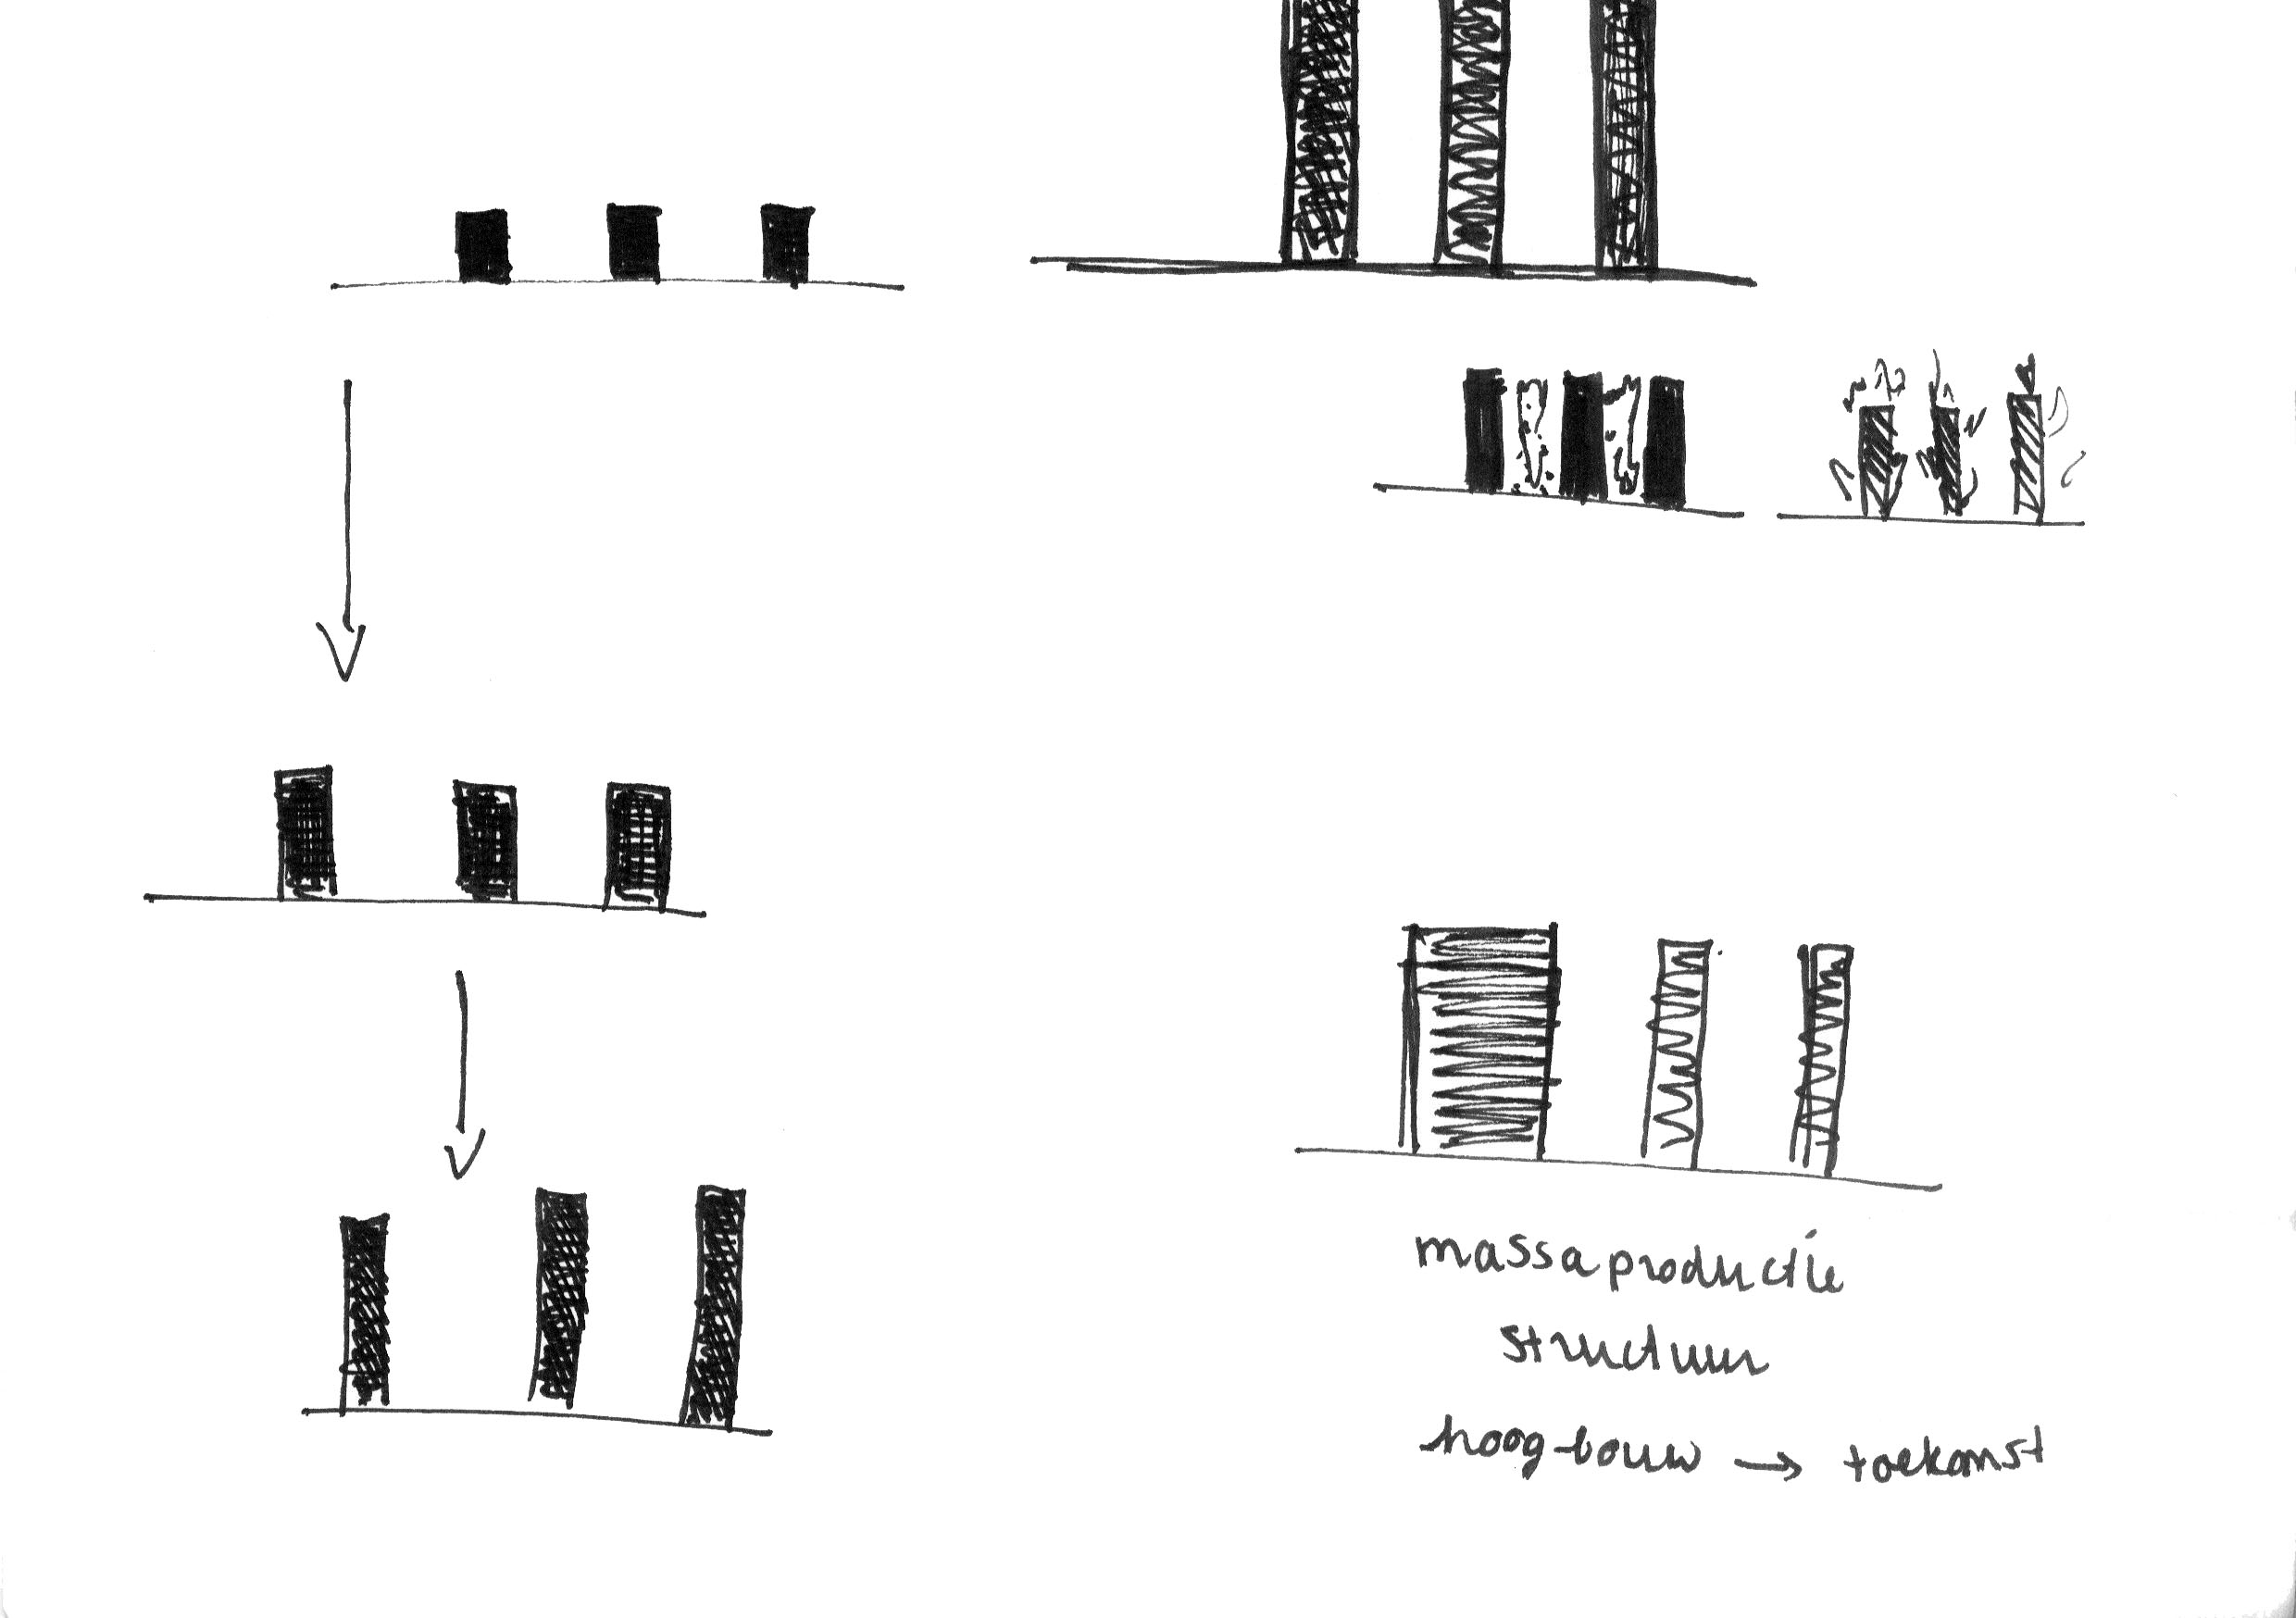 massaproductie
structuur
hoogbouw → toekomst